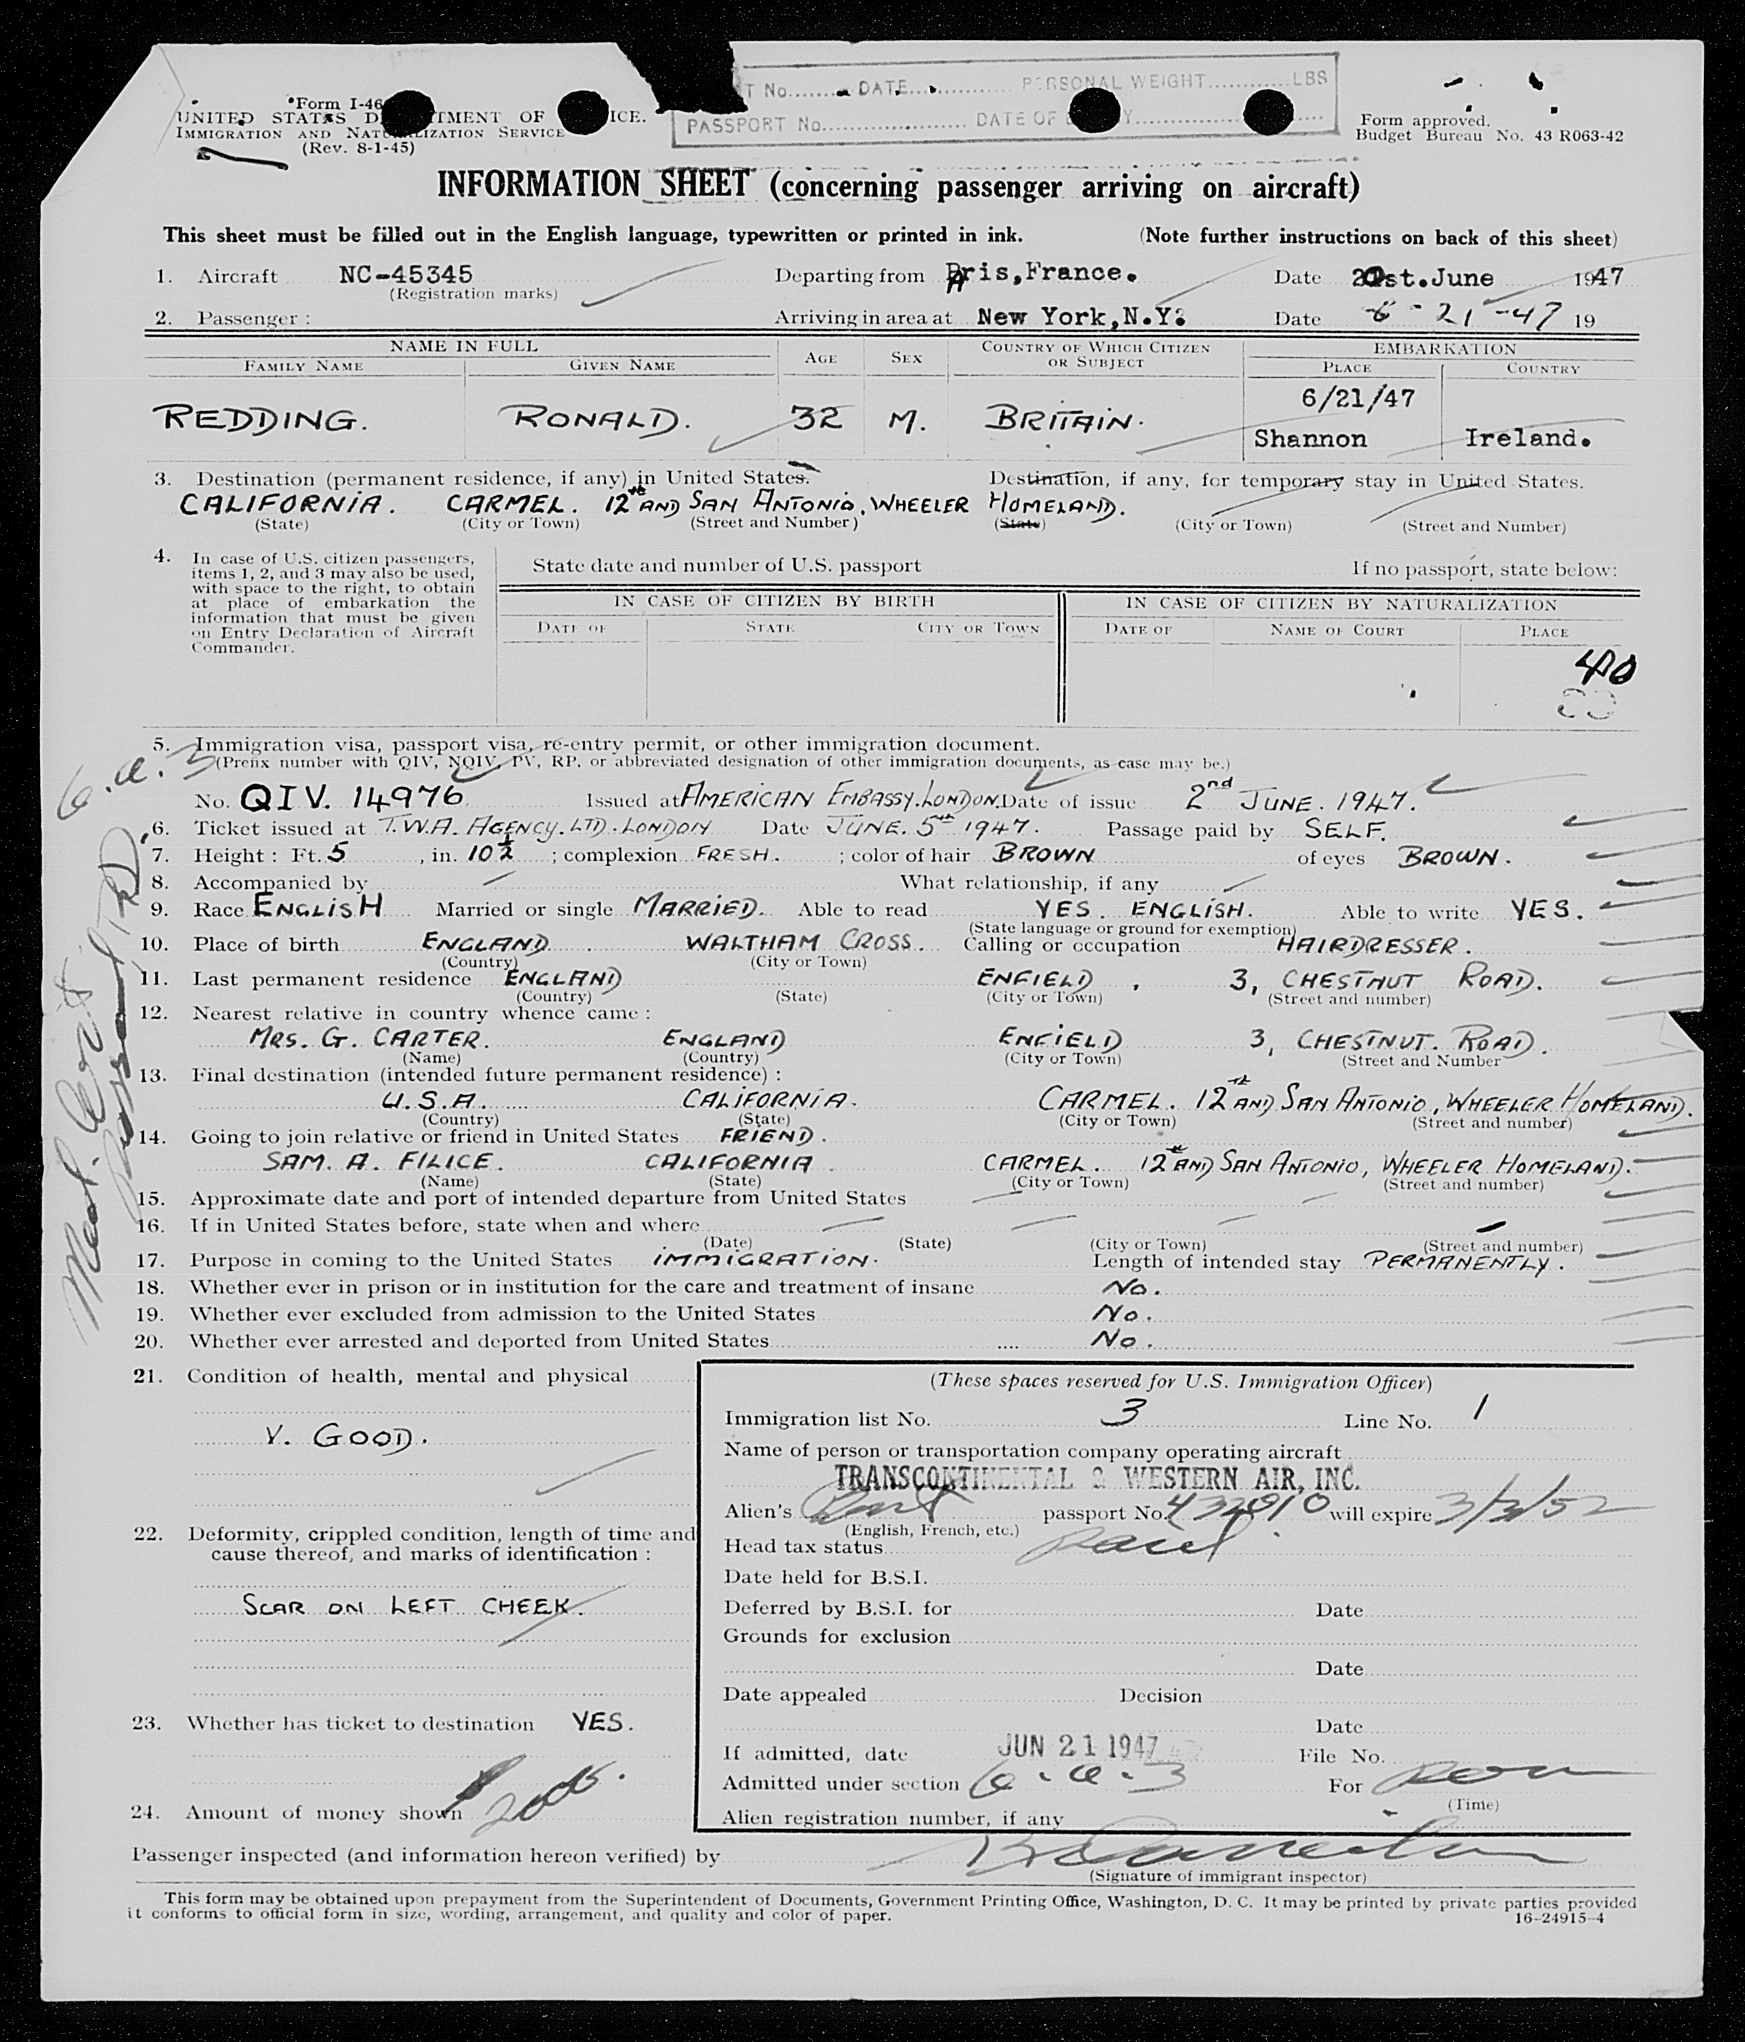 T No. DATE PERSONAL WEIGHT LBS
PASSPORT No. DATE OF
Form I-46
UNITED STATES OF ICE.
IMMIGRATION AND NATURALIZATION SERVICE
(Rev. 8-1-45)
Form approved.
Budget Bureau No. 43 R063-42
INFORMATION SHEET (concerning passenger arriving on aircraft)
This sheet must be filled out in the English language, typewritten or printed in ink. (Note further instructions on back of this sheet)
1. Aircraft NC-45345 Departing from Paris,France. Date 21st.June 1947
(Registration marks)
2. Passenger : Arriving in area at New York,N.Y. Date 6-21-47 19
NAME IN FULL AGE SEX COUNTRY OF WHICH CITIZEN OR SUBJECT EMBARKATION
FAMILY NAME GIVEN NAME PLACE COUNTRY
6/21/47
REDDING. RONALD. 32 M. BRITAIN. Shannon Ireland.
3. Destination (permanent residence, if any) in United States. Destination, if any, for temporary stay in United States.
CALIFORNIA. CARMEL. 12th AND SAN ANTONIO, WHEELER HOMELAND.
(State) (City or Town) (Street and Number) (State) (City or Town) (Street and Number)
4. In case of U.S. citizen passengers, items 1, 2, and 3 may also be used, with space to the right, to obtain at place of embarkation the information that must be given on Entry Declaration of Aircraft Commander.
State date and number of U.S. passport If no passport, state below:
IN CASE OF CITIZEN BY BIRTH IN CASE OF CITIZEN BY NATURALIZATION
DATE OF STATE CITY OR TOWN DATE OF NAME OF COURT PLACE
40
5. Immigration visa, passport visa, re-entry permit, or other immigration document.
6.a.3 (Prefix number with QIV, NQIV, PV, RP, or abbreviated designation of other immigration documents, as case may be.)
No. QIV. 14976 Issued at AMERICAN EMBASSY. LONDON. Date of issue 2nd JUNE. 1947.
6. Ticket issued at T.W.A. AGENCY. LTD. LONDON Date JUNE. 5th 1947. Passage paid by SELF.
7. Height : Ft. 5 , in. 10 1/2 ; complexion FRESH. ; color of hair BROWN of eyes BROWN.
8. Accompanied by — What relationship, if any —
9. Race ENGLISH Married or single MARRIED. Able to read YES. ENGLISH. Able to write YES.
(State language or ground for exemption)
10. Place of birth ENGLAND WALTHAM CROSS. Calling or occupation HAIRDRESSER.
(Country) (City or Town)
11. Last permanent residence ENGLAND ENFIELD, 3, CHESTNUT ROAD.
(Country) (State) (City or Town) (Street and number)
12. Nearest relative in country whence came :
MRS. G. CARTER. ENGLAND ENFIELD 3, CHESTNUT. ROAD.
(Name) (Country) (City or Town) (Street and Number
13. Final destination (intended future permanent residence) :
U.S.A. CALIFORNIA. CARMEL. 12th AND SAN ANTONIO, WHEELER HOMELAND.
(Country) (State) (City or Town) (Street and number)
14. Going to join relative or friend in United States FRIEND.
SAM. A. FILICE. CALIFORNIA. CARMEL. 12th AND SAN ANTONIO, WHEELER HOMELAND.
(Name) (State) (City or Town) (Street and number)
15. Approximate date and port of intended departure from United States —
16. If in United States before, state when and where —
(Date) (State) (City or Town) (Street and number)
17. Purpose in coming to the United States IMMIGRATION. Length of intended stay PERMANENTLY.
18. Whether ever in prison or in institution for the care and treatment of insane No.
19. Whether ever excluded from admission to the United States No.
20. Whether ever arrested and deported from United States No.
21. Condition of health, mental and physical
V. GOOD.
22. Deformity, crippled condition, length of time and
cause thereof, and marks of identification :
SCAR ON LEFT CHEEK.
23. Whether has ticket to destination YES.
24. Amount of money shown
(These spaces reserved for U.S. Immigration Officer)
Immigration list No. 3 Line No. 1
Name of person or transportation company operating aircraft
TRANSCONTINENTAL & WESTERN AIR, INC.
Alien's passport No. 432910 will expire 3/3/52
(English, French, etc.)
Head tax status Paid
Date held for B.S.I.
Deferred by B.S.I. for Date
Grounds for exclusion
Date
Date appealed Decision
Date
If admitted, date JUN 21 1947 File No.
Admitted under section 6.a.3 For
(Time)
Alien registration number, if any
Passenger inspected (and information hereon verified) by
(Signature of immigrant inspector)
This form may be obtained upon prepayment from the Superintendent of Documents, Government Printing Office, Washington, D. C. It may be printed by private parties provided
it conforms to official form in size, wording, arrangement, and quality and color of paper.
16-24915-4